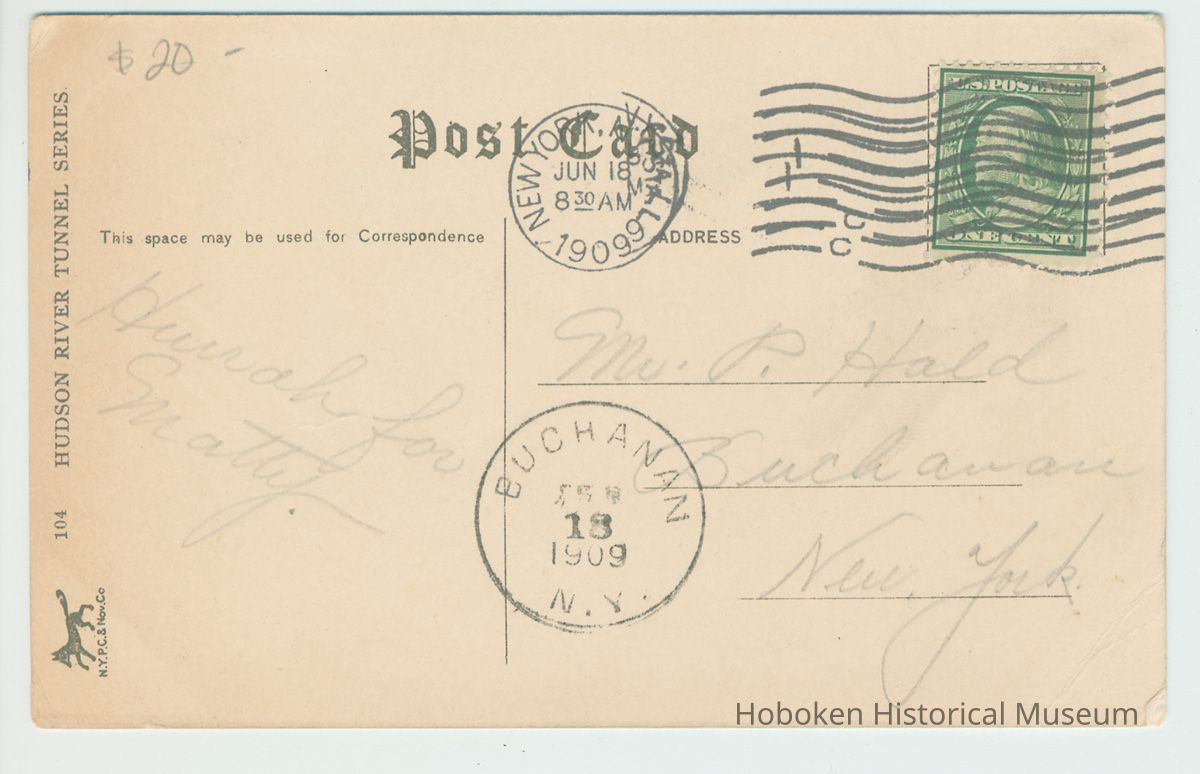 $20 -
Post Card
NEW YORK, N.Y. STA. L
JUN 18
8 30 AM
1909
C
C
U.S. POSTAGE
This space may be used for Correspondence
ADDRESS
104 HUDSON RIVER TUNNEL SERIES.
N.Y.P.C.& Nov.Co
Hurrah for
Matty.
Mr. P. Hald
Buchanan
New York.
BUCHANAN
18
1909
N.Y.
Hoboken Historical Museum